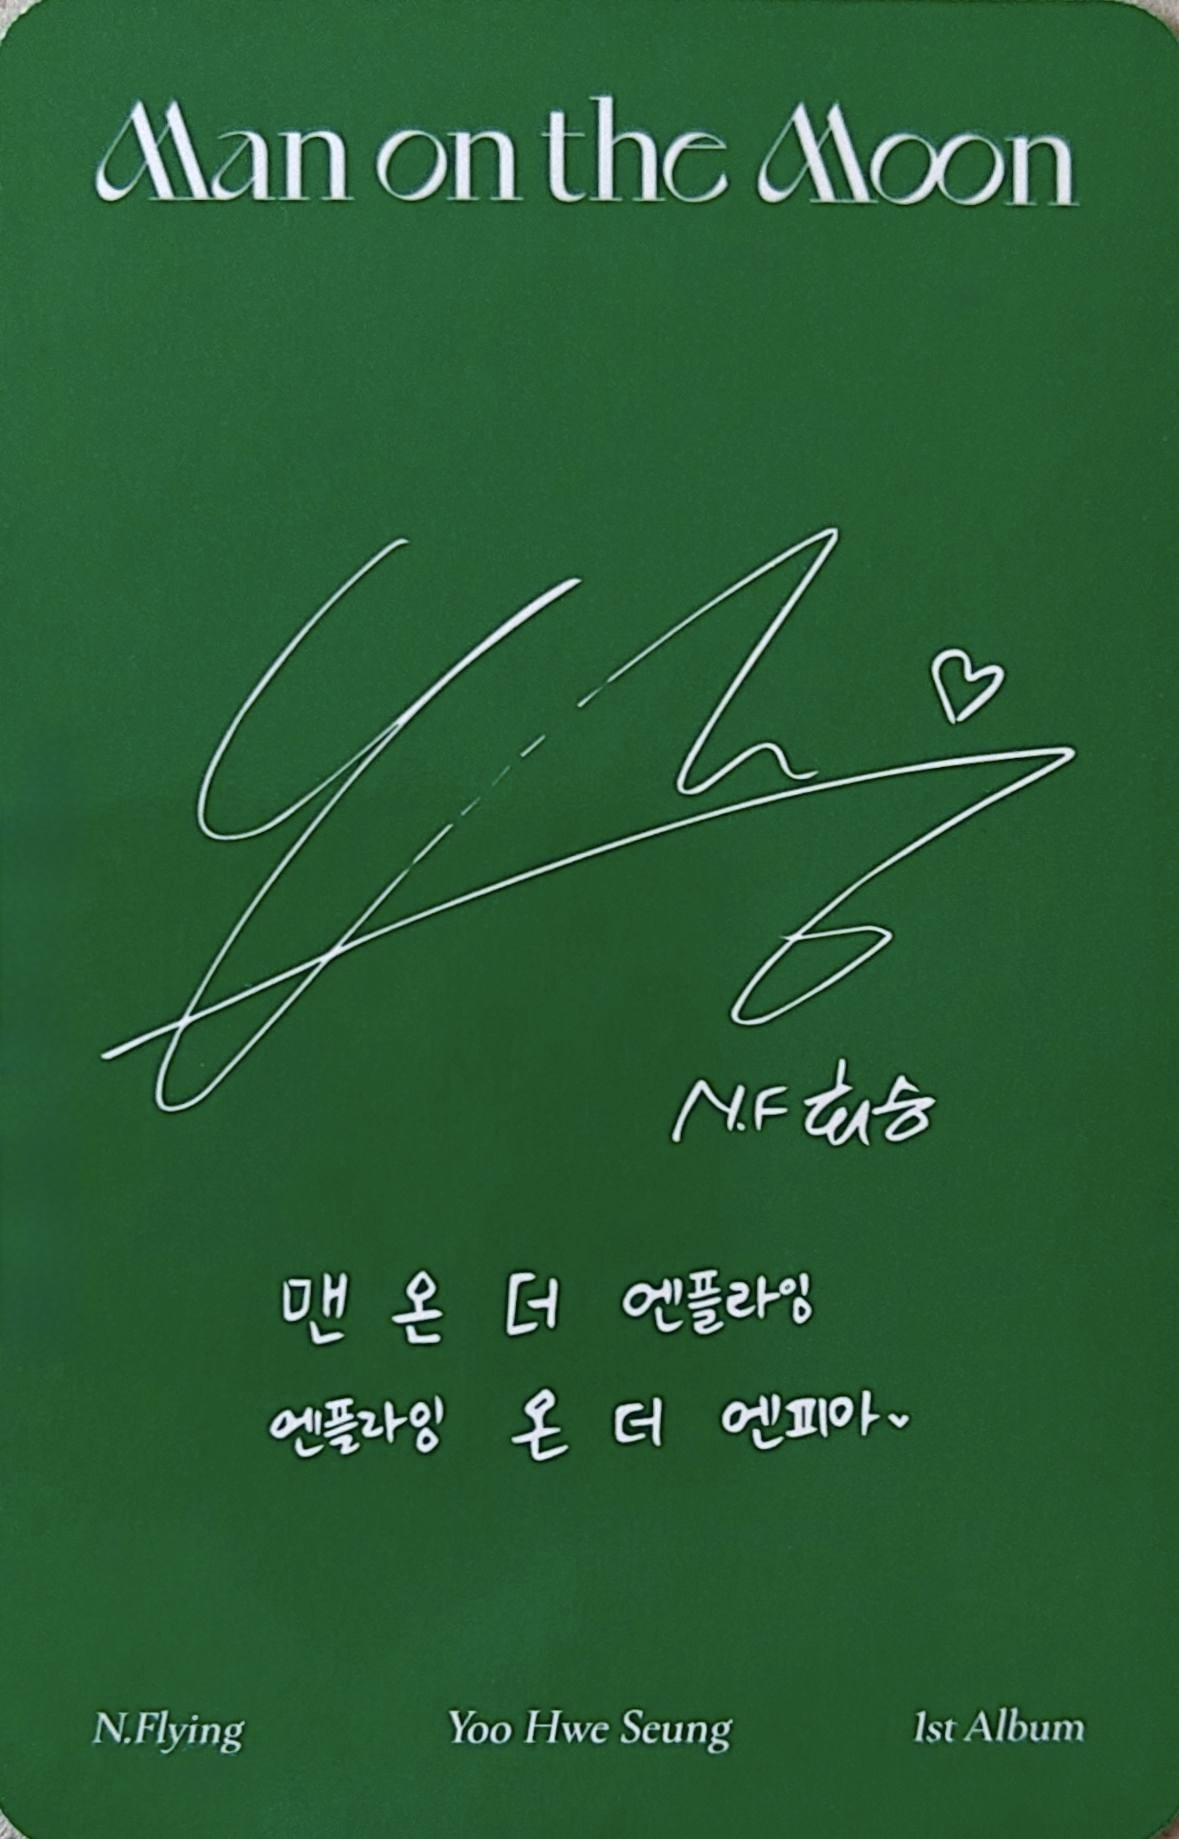 Man on the Moon
N.F 회승
맨 온 더 엔플라잉
엔플라잉 온 더 엔피아
N.Flying Yoo Hwe Seung 1st Album